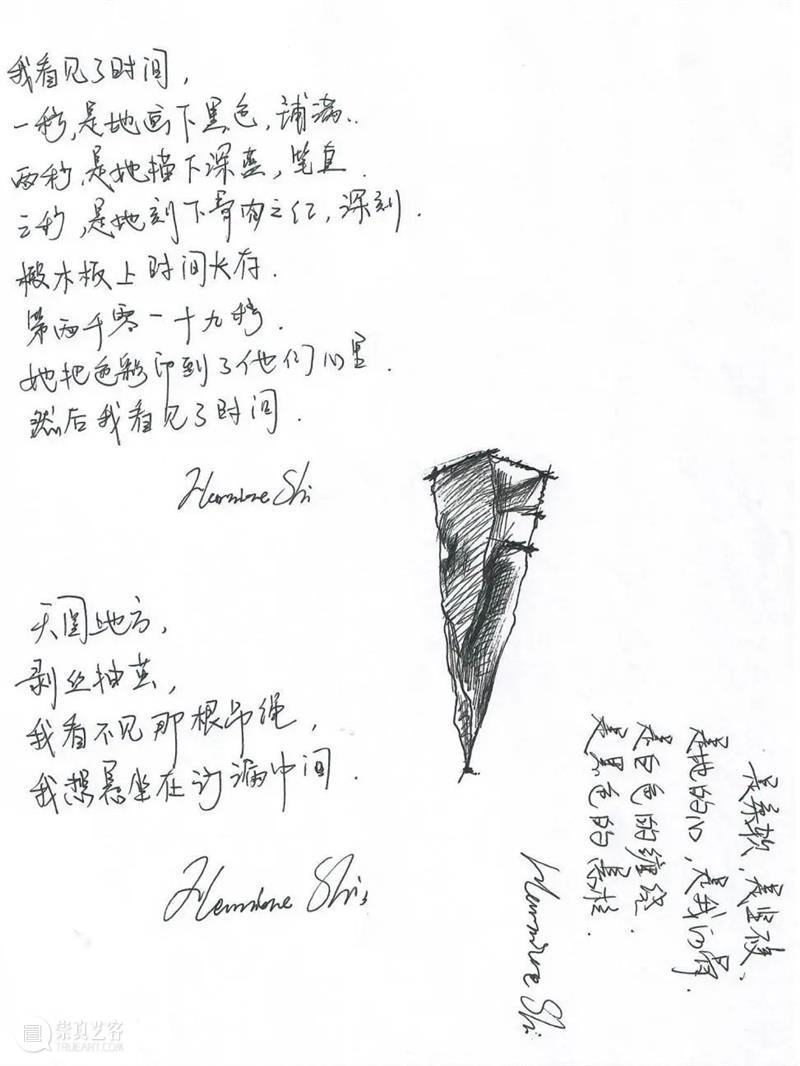 我看见了时间,
一秒,是她画下黑色,铺满.
两秒,是她下深蓝,笔直.
三秒,是她刻下骨肉之红,深刻.
椴木板上时间长存.
第两千零一十九秒.
她把色彩印到了他们心里.
然后我看见了时间.
Hermione Shi
天圆地方,
剥丝抽茧,
我看不见那根吊绳,
我想悬坐在沙漏中间.
Hermione Shi
是柔软,是坚硬、
是她的心,是我的骨.
是白色的缠绕.
是黑色的悬.
Hermione Shi
崇真艺客
TRUEART.COM